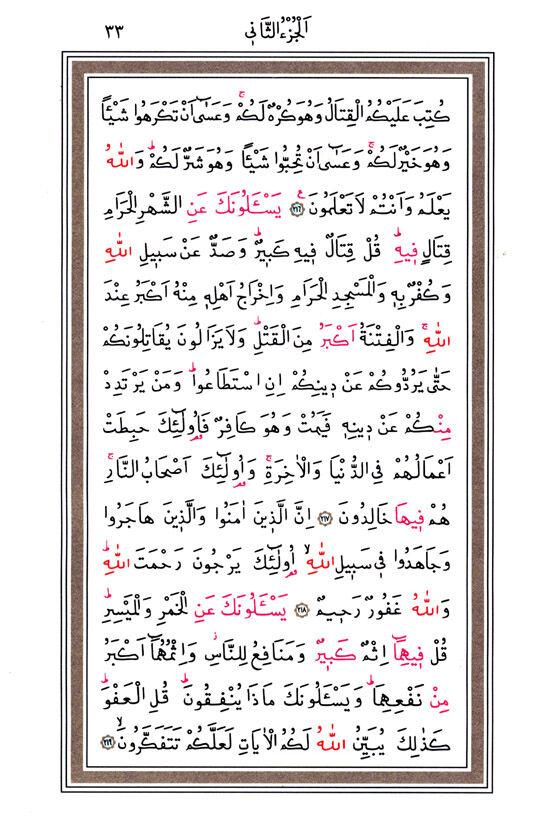 اَلْجُزْءُ الثَّانٖي
٣٣
كُتِبَ عَلَيْكُمُ الْقِتَالُ وَهُوَ كُرْهٌ لَكُمْۚ وَعَسٰٓى اَنْ تَكْرَهُوا شَيْـًٔا
وَهُوَ خَيْرٌ لَكُمْۚ وَعَسٰٓى اَنْ تُحِبُّوا شَيْـًٔا وَهُوَ شَرٌّ لَكُمْۜ وَاللّٰهُ
يَعْلَمُ وَاَنْتُمْ لَا تَعْلَمُونَࣖ ﴿٢١٦﴾ يَسْـَٔلُونَكَ عَنِ الشَّهْرِ الْحَرَامِ
قِتَالٍ فٖيهِۜ قُلْ قِتَالٌ فٖيهِ كَبٖيرٌۜ وَصَدٌّ عَنْ سَبٖيلِ اللّٰهِ
وَكُفْرٌ بِهٖ وَالْمَسْجِدِ الْحَرَامِ وَاِخْرَاجُ اَهْلِهٖ مِنْهُ اَكْبَرُ عِنْدَ
اللّٰهِۚ وَالْفِتْنَةُ اَكْبَرُ مِنَ الْقَتْلِۜ وَلَا يَزَالُونَ يُقَاتِلُونَكُمْ
حَتّٰى يَرُدُّوكُمْ عَنْ دٖينِكُمْ اِنِ اسْتَطَاعُواۜ وَمَنْ يَرْتَدِدْ
مِنْكُمْ عَنْ دٖينِهٖ فَيَمُتْ وَهُوَ كَافِرٌ فَاُو۬لٰٓئِكَ حَبِطَتْ
اَعْمَالُهُمْ فِي الدُّنْيَا وَالْاٰخِرَةِۚ وَاُو۬لٰٓئِكَ اَصْحَابُ النَّارِۚ
هُمْ فٖيهَا خَالِدُونَ ﴿٢١٧﴾ اِنَّ الَّذٖينَ اٰمَنُوا وَالَّذٖينَ هَاجَرُوا
وَجَاهَدُوا فٖي سَبٖيلِ اللّٰهِۙ اُو۬لٰٓئِكَ يَرْجُونَ رَحْمَتَ اللّٰهِۜ
وَاللّٰهُ غَفُورٌ رَحٖيمٌ ﴿٢١٨﴾ يَسْـَٔلُونَكَ عَنِ الْخَمْرِ وَالْمَيْسِرِۜ
قُلْ فٖيهِمَٓا اِثْمٌ كَبٖيرٌ وَمَنَافِعُ لِلنَّاسِۘ وَاِثْمُهُمَٓا اَكْبَرُ
مِنْ نَفْعِهِمَاۜ وَيَسْـَٔلُونَكَ مَاذَا يُنْفِقُونَۜ قُلِ الْعَفْوَۜ
كَذٰلِكَ يُبَيِّنُ اللّٰهُ لَكُمُ الْاٰيَاتِ لَعَلَّكُمْ تَتَفَكَّرُونَۙ ﴿٢١٩﴾